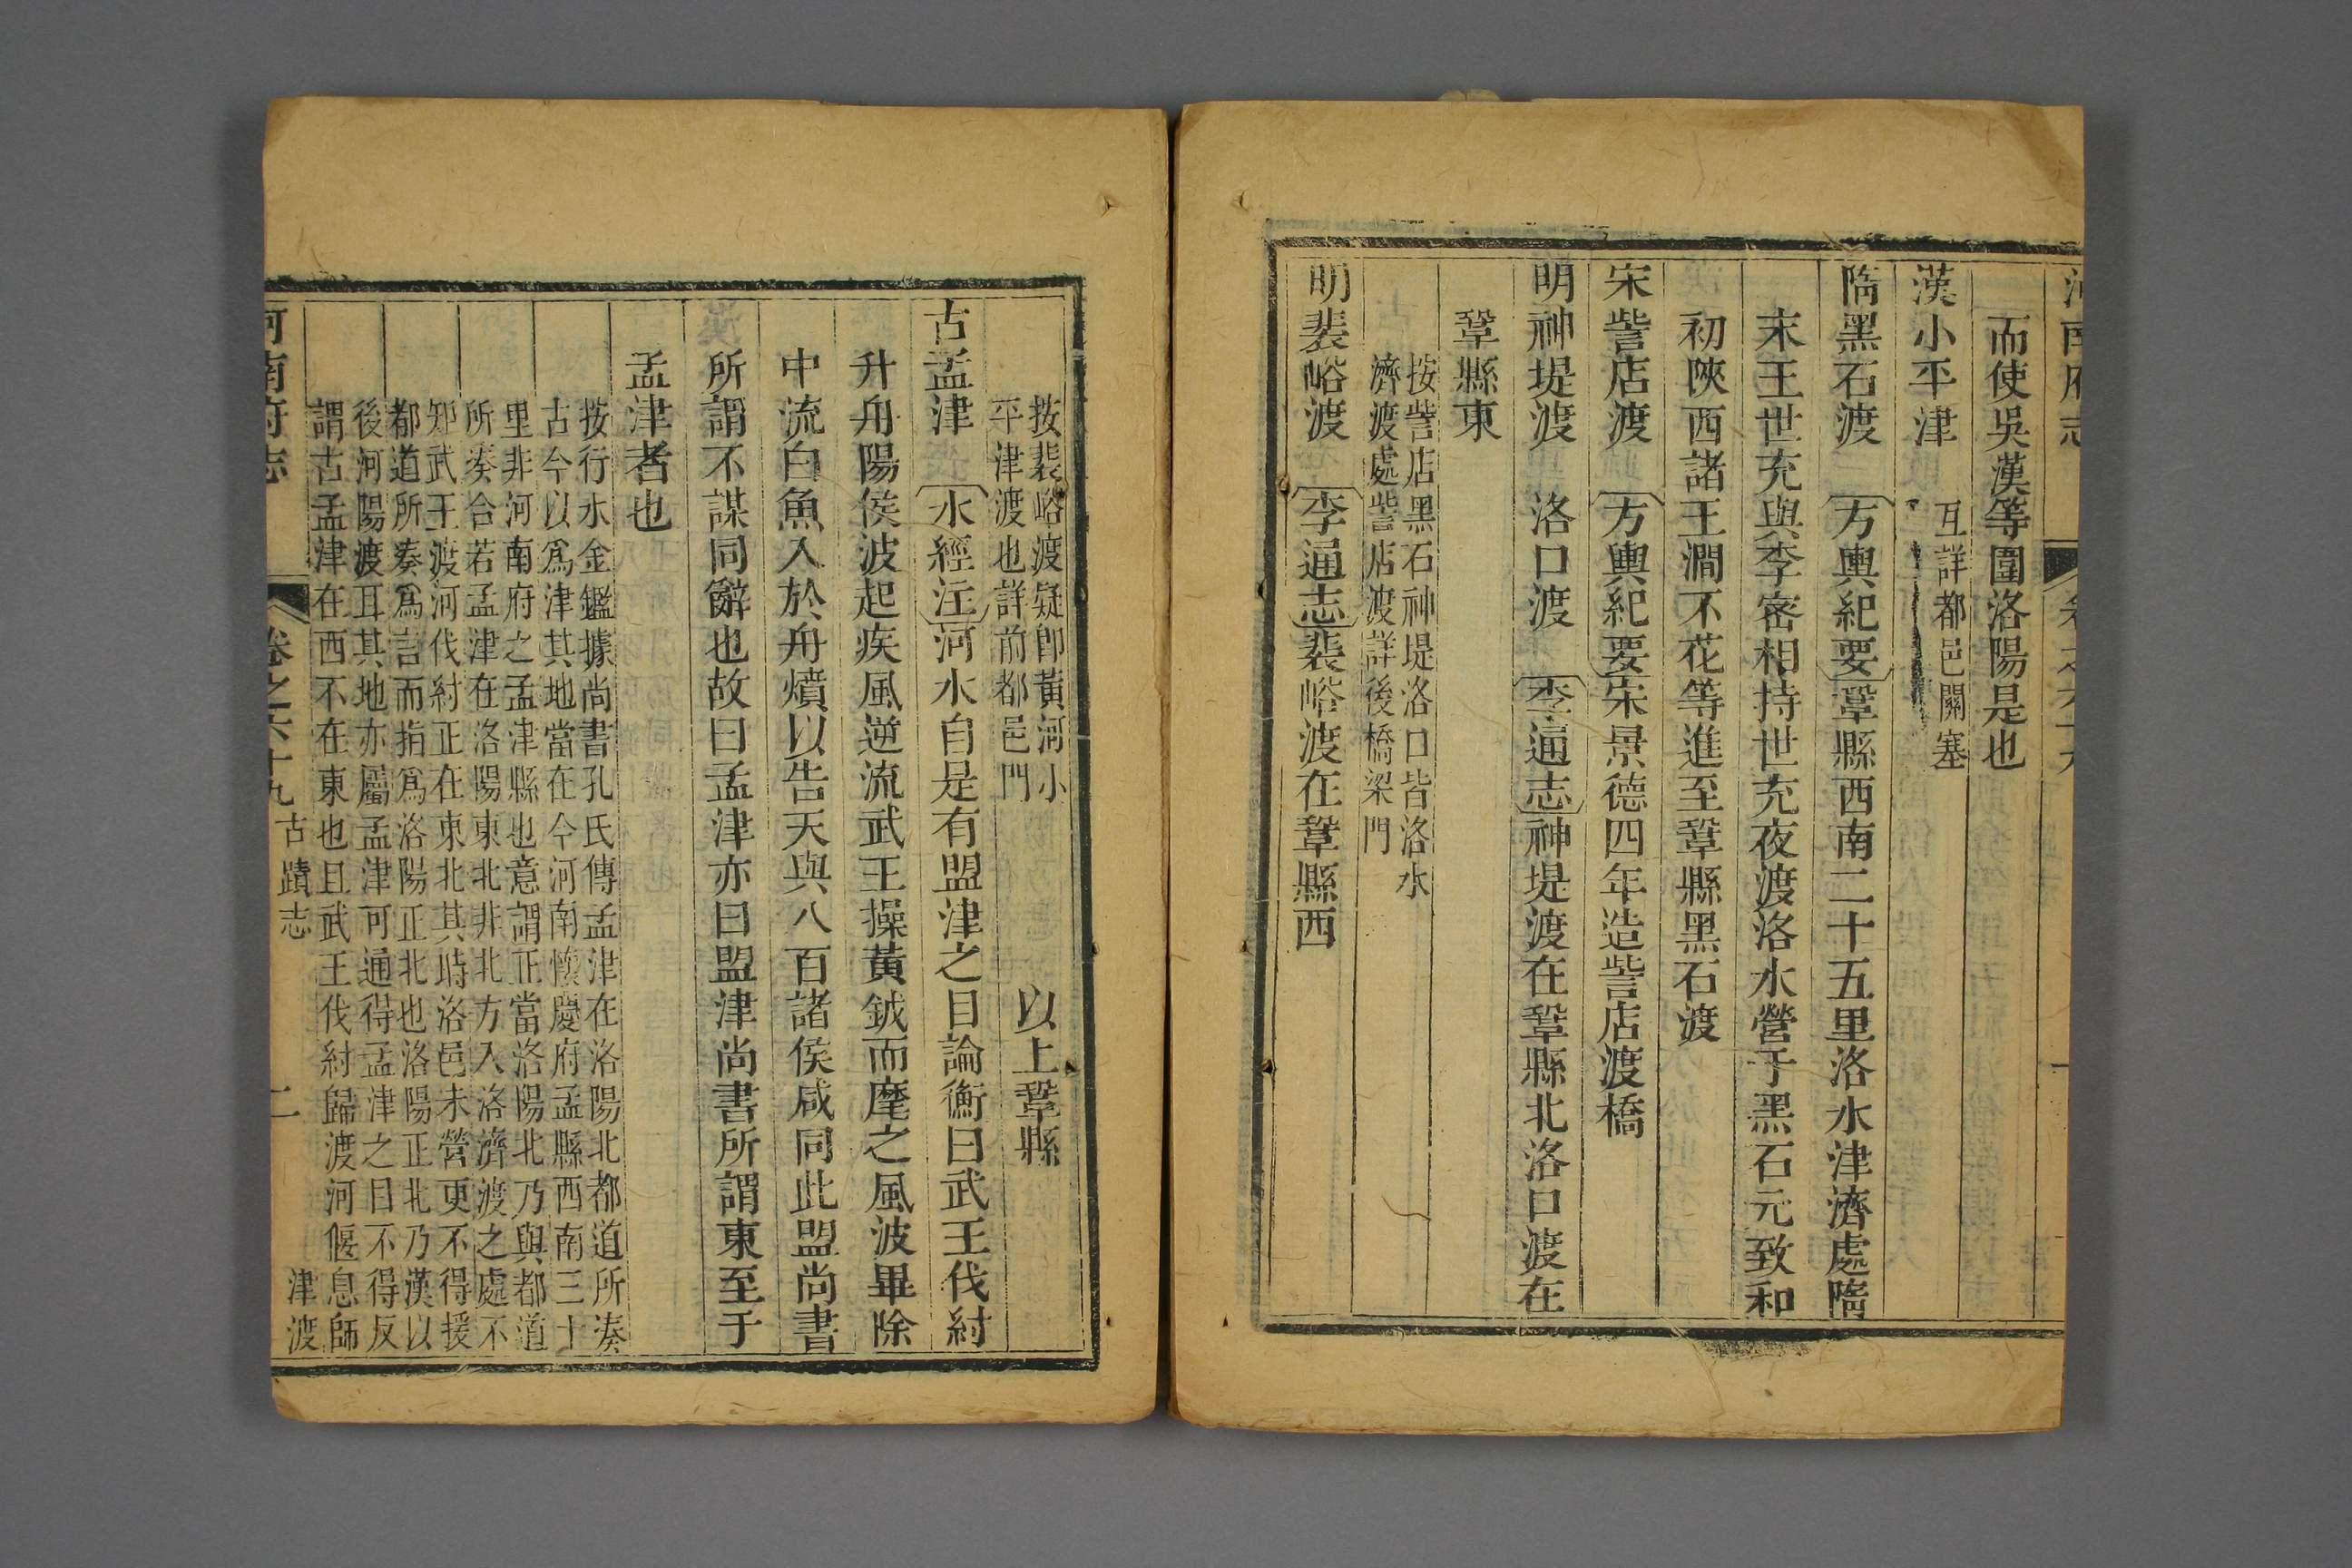 河南府志 卷之六十九 一
而使吳漢等圍洛陽是也
漢小平津 互詳都邑關塞
隋黑石渡 方輿紀要鞏縣西南二十五里洛水津濟處隋
末王世充與李密相持世充夜渡洛水營于黑石元致和
初陝西諸王澗不花等進至鞏縣黑石渡
宋訾店渡 方輿紀要宋景德四年造訾店渡橋
明神堤渡 洛口渡 李通志神堤渡在鞏縣北洛口渡在
鞏縣東
按訾店黑石神堤洛口皆洛水
濟渡處訾店渡詳後橋梁門
明裴峪渡 李通志裴峪渡在鞏縣西
按裴峪渡疑卽黃河小
平津渡也詳前都邑門
以上鞏縣
古孟津 水經注河水自是有盟津之目論衡曰武王伐紂
升舟陽侯波起疾風逆流武王操黃鉞而麾之風波畢除
中流白魚入於舟燔以告天與八百諸侯咸同此盟尚書
所謂不謀同辭也故曰孟津亦曰盟津尚書所謂東至于
孟津者也
按行水金鑑據尚書孔氏傳孟津在洛陽北都道所湊
古今以爲津其地當在今河南懷慶府孟縣西南三十
里非河南府之孟津縣也意謂正當洛陽北乃與都道
所湊合若孟津在洛陽東北非北方入洛濟渡之處不
知武王渡河伐紂正在東北其時洛邑未營更不得援
都道所湊爲言而指爲洛陽正北也洛陽正北乃漢以
後河陽渡耳其地亦屬孟津可通得孟津之目不得反
謂古孟津在西不在東也且武王伐紂歸渡河偃息師
河南府志 卷之六十九 古蹟志 二 津渡